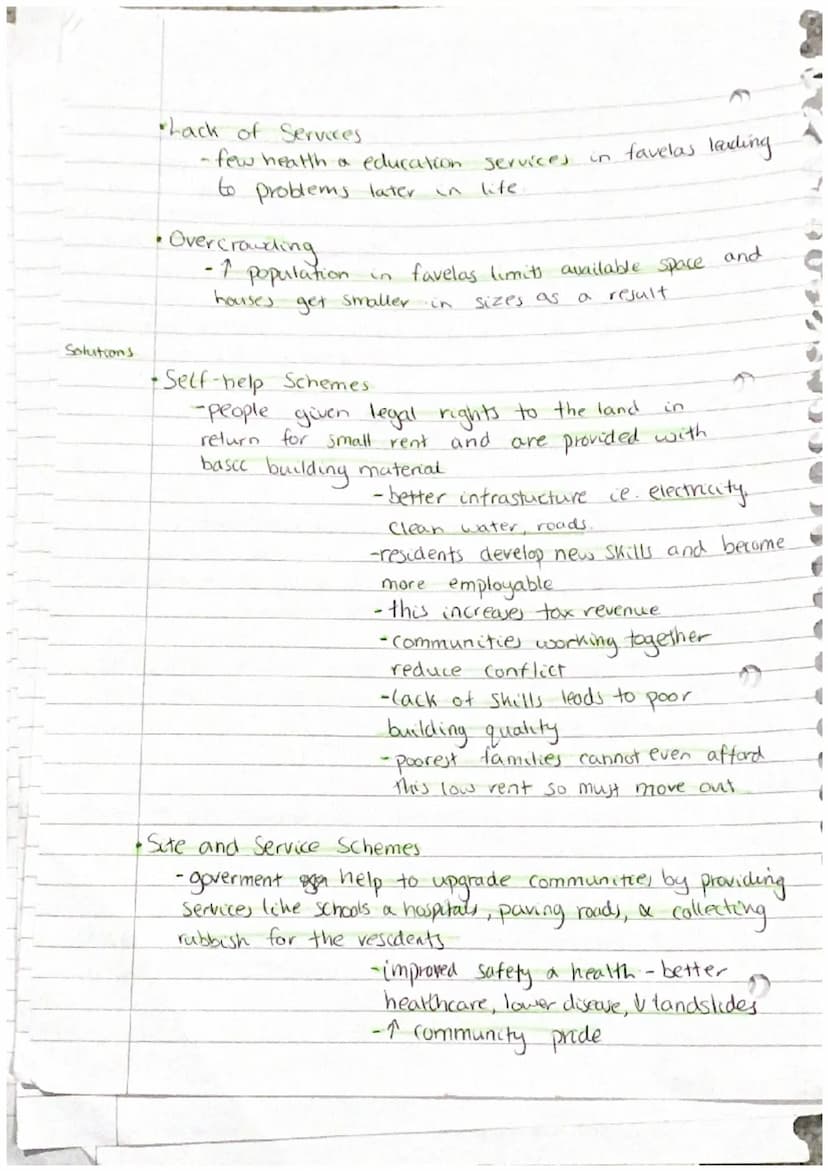 •Lack of Services
- few health & education services in favelas leading
to problems later in life
• Overcrowding
- ↑ population in favelas limits available space and
houses get smaller in sizes as a result
Solutions
• Self-help Schemes
- people given legal rights to the land in
return for small rent and are provided with
basic building material
- better infrastucture i.e. electricity,
clean water, roads.
- residents develop new skills and become
more employable
- this increases tax revenue
- communities working together
reduce conflict
- lack of skills leads to poor
building quality
- poorest families cannot even afford
this low rent so must move out
• Site and Service Schemes
- goverment help to upgrade communities by providing
services like schools & hospitals, paving roads, & collecting
rubbish for the residents
- improved safety & health - better
healthcare, lower disease, ↓ landslides
- ↑ community pride